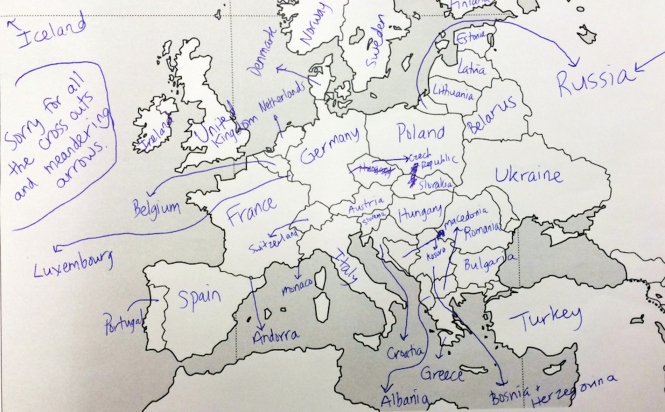 Iceland
Sorry for all
the cross outs
and meandering
arrows.
Norway
Sweden
Finland
Estonia
Latvia
Lithuania
Russia
Belarus
Denmark
Netherlands
Ireland
United
Kingdom
Germany
Poland
Czech
Republic
Slovakia
Ukraine
Belgium
France
Austria
Hungary
Luxembourg
Switzerland
Italy
Macedonia
Romania
Kosovo
Bulgaria
Monaco
Portugal
Spain
Andorra
Croatia
Greece
Turkey
Albania
Bosnia +
Herzegovina